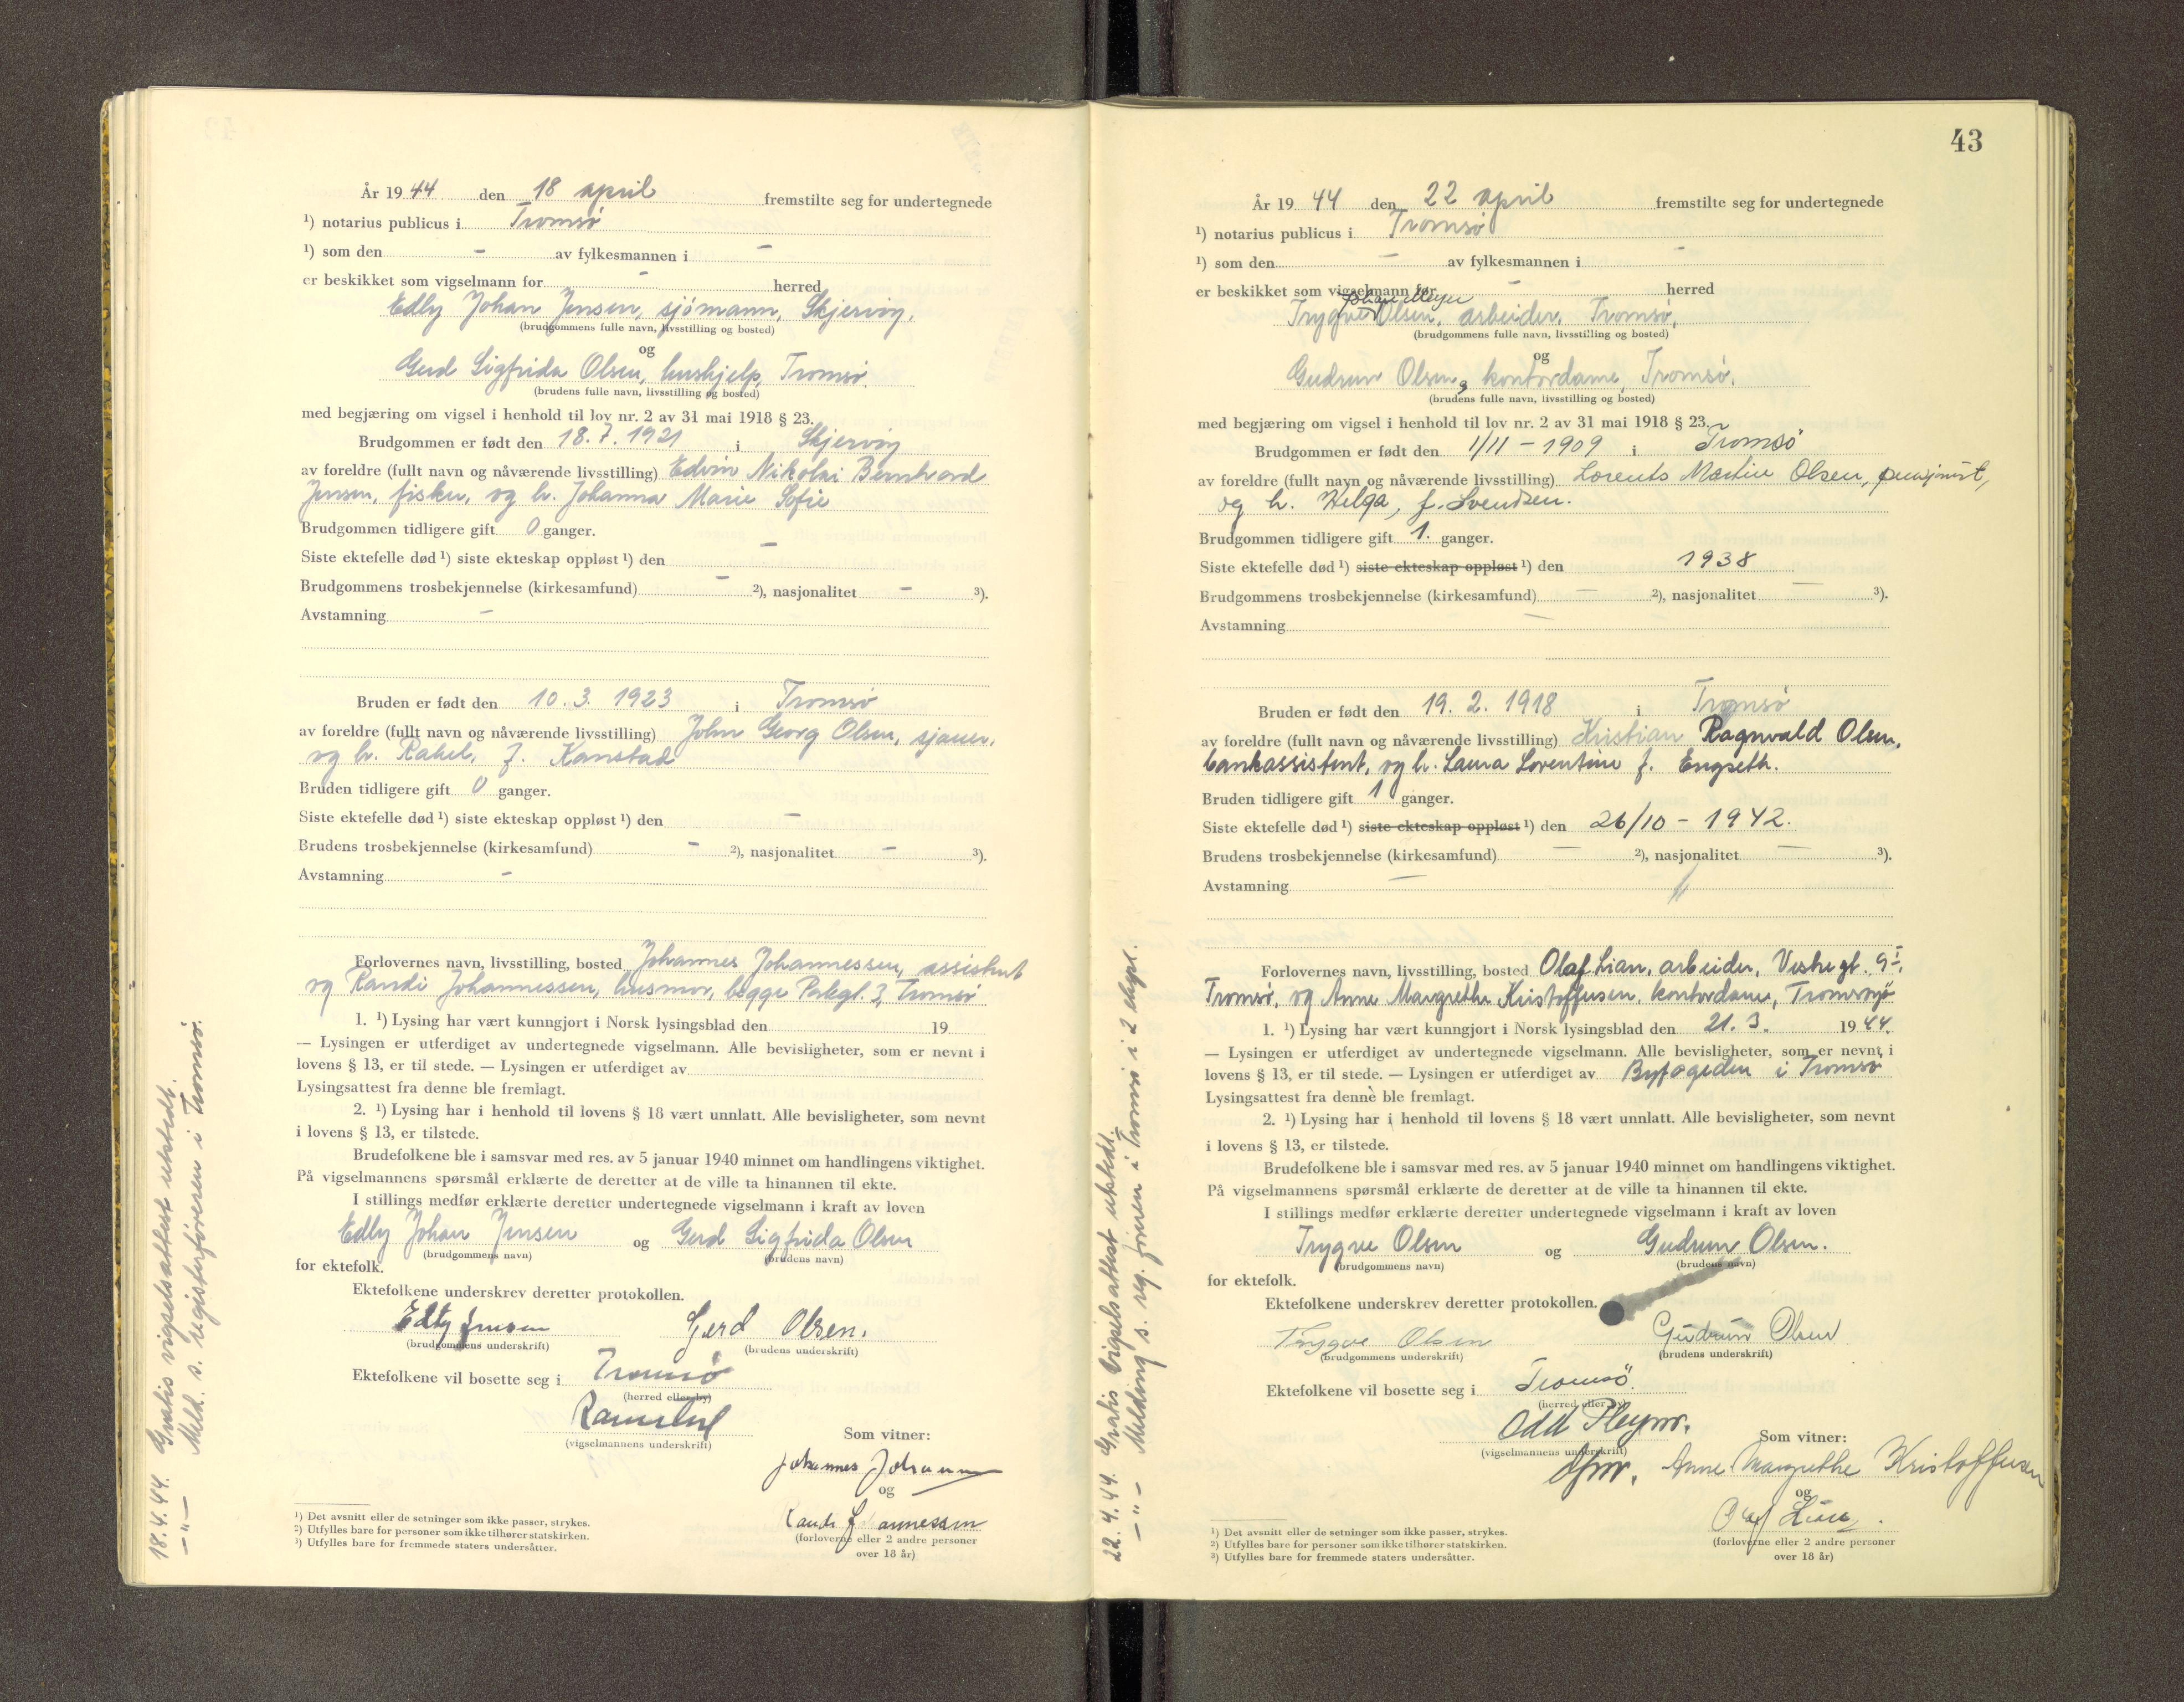 År 19 44 den 18 april fremstilte seg for undertegnede
¹) notarius publicus i Tromsø
¹) som den - av fylkesmannen i -
er beskikket som vigselmann for - herred
Edly Johan Jensen, sjömann, Skjervøy.
(brudgommens fulle navn, livsstilling og bosted)
og
Gerd Sigfrida Olsen, hushjelp, Tromsø.
(brudens fulle navn, livsstilling og bosted)
med begjæring om vigsel i henhold til lov nr. 2 av 31 mai 1918 § 23.
Brudgommen er født den 18.7.1921 i Skjervøy
av foreldre (fullt navn og nåværende livsstilling) Edvin Nikolai Bernhard
Jensen, fisker, og h. Johanna Marie Sofie
Brudgommen tidligere gift 0 ganger.
Siste ektefelle død ¹) siste ekteskap oppløst ¹) den -
Brudgommens trosbekjennelse (kirkesamfund) - ²), nasjonalitet - ³).
Avstamning -
Bruden er født den 10.3.1923 i Tromsø
av foreldre (fullt navn og nåværende livsstilling) John Georg Olsen, sjauer,
og h. Rakel, f. Kanstad
Bruden tidligere gift 0 ganger.
Siste ektefelle død ¹) siste ekteskap oppløst ¹) den -
Brudens trosbekjennelse (kirkesamfund) - ²), nasjonalitet - ³).
Avstamning -
Forlovernes navn, livsstilling, bosted Johannes Johannessen, assistent
og Randi Johannessen, husmor, begge Parkgt. 3, Tromsø
1. ¹) Lysing har vært kunngjort i Norsk lysingsblad den 19
— Lysingen er utferdiget av undertegnede vigselmann. Alle bevisligheter, som er nevnt i
lovens § 13, er til stede. — Lysingen er utferdiget av
Lysingsattest fra denne ble fremlagt.
2. ¹) Lysing har i henhold til lovens § 18 vært unnlatt. Alle bevisligheter, som nevnt
i lovens § 13, er tilstede.
Brudefolkene ble i samsvar med res. av 5 januar 1940 minnet om handlingens viktighet.
På vigselmannens spørsmål erklærte de deretter at de ville ta hinannen til ekte.
I stillings medfør erklærte deretter undertegnede vigselmann i kraft av loven
Edly Johan Jensen og Gerd Sigfrida Olsen
(brudgommens navn) (brudens navn)
for ektefolk.
Ektefolkene underskrev deretter protokollen.
Edly Jensen Gerd Olsen.
(brudgommens underskrift) (brudens underskrift)
Ektefolkene vil bosette seg i Tromsø
(herred eller by)
(vigselmannens underskrift)
Som vitner:
Johannes
og
Randi Johannessen
(forloverne eller 2 andre personer
over 18 år)
¹) Det avsnitt eller de setninger som ikke passer, strykes.
²) Utfylles bare for personer som ikke tilhører statskirken.
³) Utfylles bare for fremmede staters undersåtter.
18.4.44. Gratis vigselsattest utstedt.
—"— Meld. s. registerføreren i Tromsø.
43
År 19 44 den 22 april fremstilte seg for undertegnede
¹) notarius publicus i Tromsø
¹) som den - av fylkesmannen i -
er beskikket som vigselmann for - herred
Johan Meyer
Trygve Olsen, arbeider, Tromsø,
(brudgommens fulle navn, livsstilling og bosted)
og
Gudrun Olsen, kontordame, Tromsø.
(brudens fulle navn, livsstilling og bosted)
med begjæring om vigsel i henhold til lov nr. 2 av 31 mai 1918 § 23.
Brudgommen er født den 1/11 - 1909 i Tromsö
av foreldre (fullt navn og nåværende livsstilling) Lorents Martin Olsen, pensjonist,
og h. Helga, f. Svendsen.
Brudgommen tidligere gift 1. ganger.
Siste ektefelle død ¹) siste ekteskap oppløst ¹) den 1938
Brudgommens trosbekjennelse (kirkesamfund) — ²), nasjonalitet — ³).
Avstamning —
Bruden er født den 19.2.1918 i Tromsø
av foreldre (fullt navn og nåværende livsstilling) Kristian Ragnvald Olsen,
bankassistent, og h. Laura Lorentine f. Engseth.
Bruden tidligere gift 1 ganger.
Siste ektefelle død ¹) siste ekteskap oppløst ¹) den 26/10 - 1942.
Brudens trosbekjennelse (kirkesamfund) — ²), nasjonalitet — ³).
Avstamning —
Forlovernes navn, livsstilling, bosted Olaf Lian, arbeider, Vestregt. 9 I,
Tromsø, og Anne Margrethe Kristoffersen, kontordame, Tromsøysund
1. ¹) Lysing har vært kunngjort i Norsk lysingsblad den 21.3. 19 44.
— Lysingen er utferdiget av undertegnede vigselmann. Alle bevisligheter, som er nevnt i
lovens § 13, er til stede. — Lysingen er utferdiget av Byfogeden i Tromsø
Lysingsattest fra denne ble fremlagt.
2. ¹) Lysing har i henhold til lovens § 18 vært unnlatt. Alle bevisligheter, som nevnt
i lovens § 13, er tilstede.
Brudefolkene ble i samsvar med res. av 5 januar 1940 minnet om handlingens viktighet.
På vigselmannens spørsmål erklærte de deretter at de ville ta hinannen til ekte.
I stillings medfør erklærte deretter undertegnede vigselmann i kraft av loven
Trygve Olsen og Gudrun Olsen.
(brudgommens navn) (brudens navn)
for ektefolk.
Ektefolkene underskrev deretter protokollen.
Trygve Olsen Gudrun Olsen
(brudgommens underskrift) (brudens underskrift)
Ektefolkene vil bosette seg i Tromsö.
(herred eller by)
Odd
(vigselmannens underskrift)
Som vitner:
Anne Margrethe Kristoffersen
og
Olaf Lian.
(forloverne eller 2 andre personer
over 18 år)
¹) Det avsnitt eller de setninger som ikke passer, strykes.
²) Utfylles bare for personer som ikke tilhører statskirken.
³) Utfylles bare for fremmede staters undersåtter.
22.4.44. Gratis vigselsattest utstedt.
—"— Melding s. reg. föreren i Tromsø i 2 ekspl.